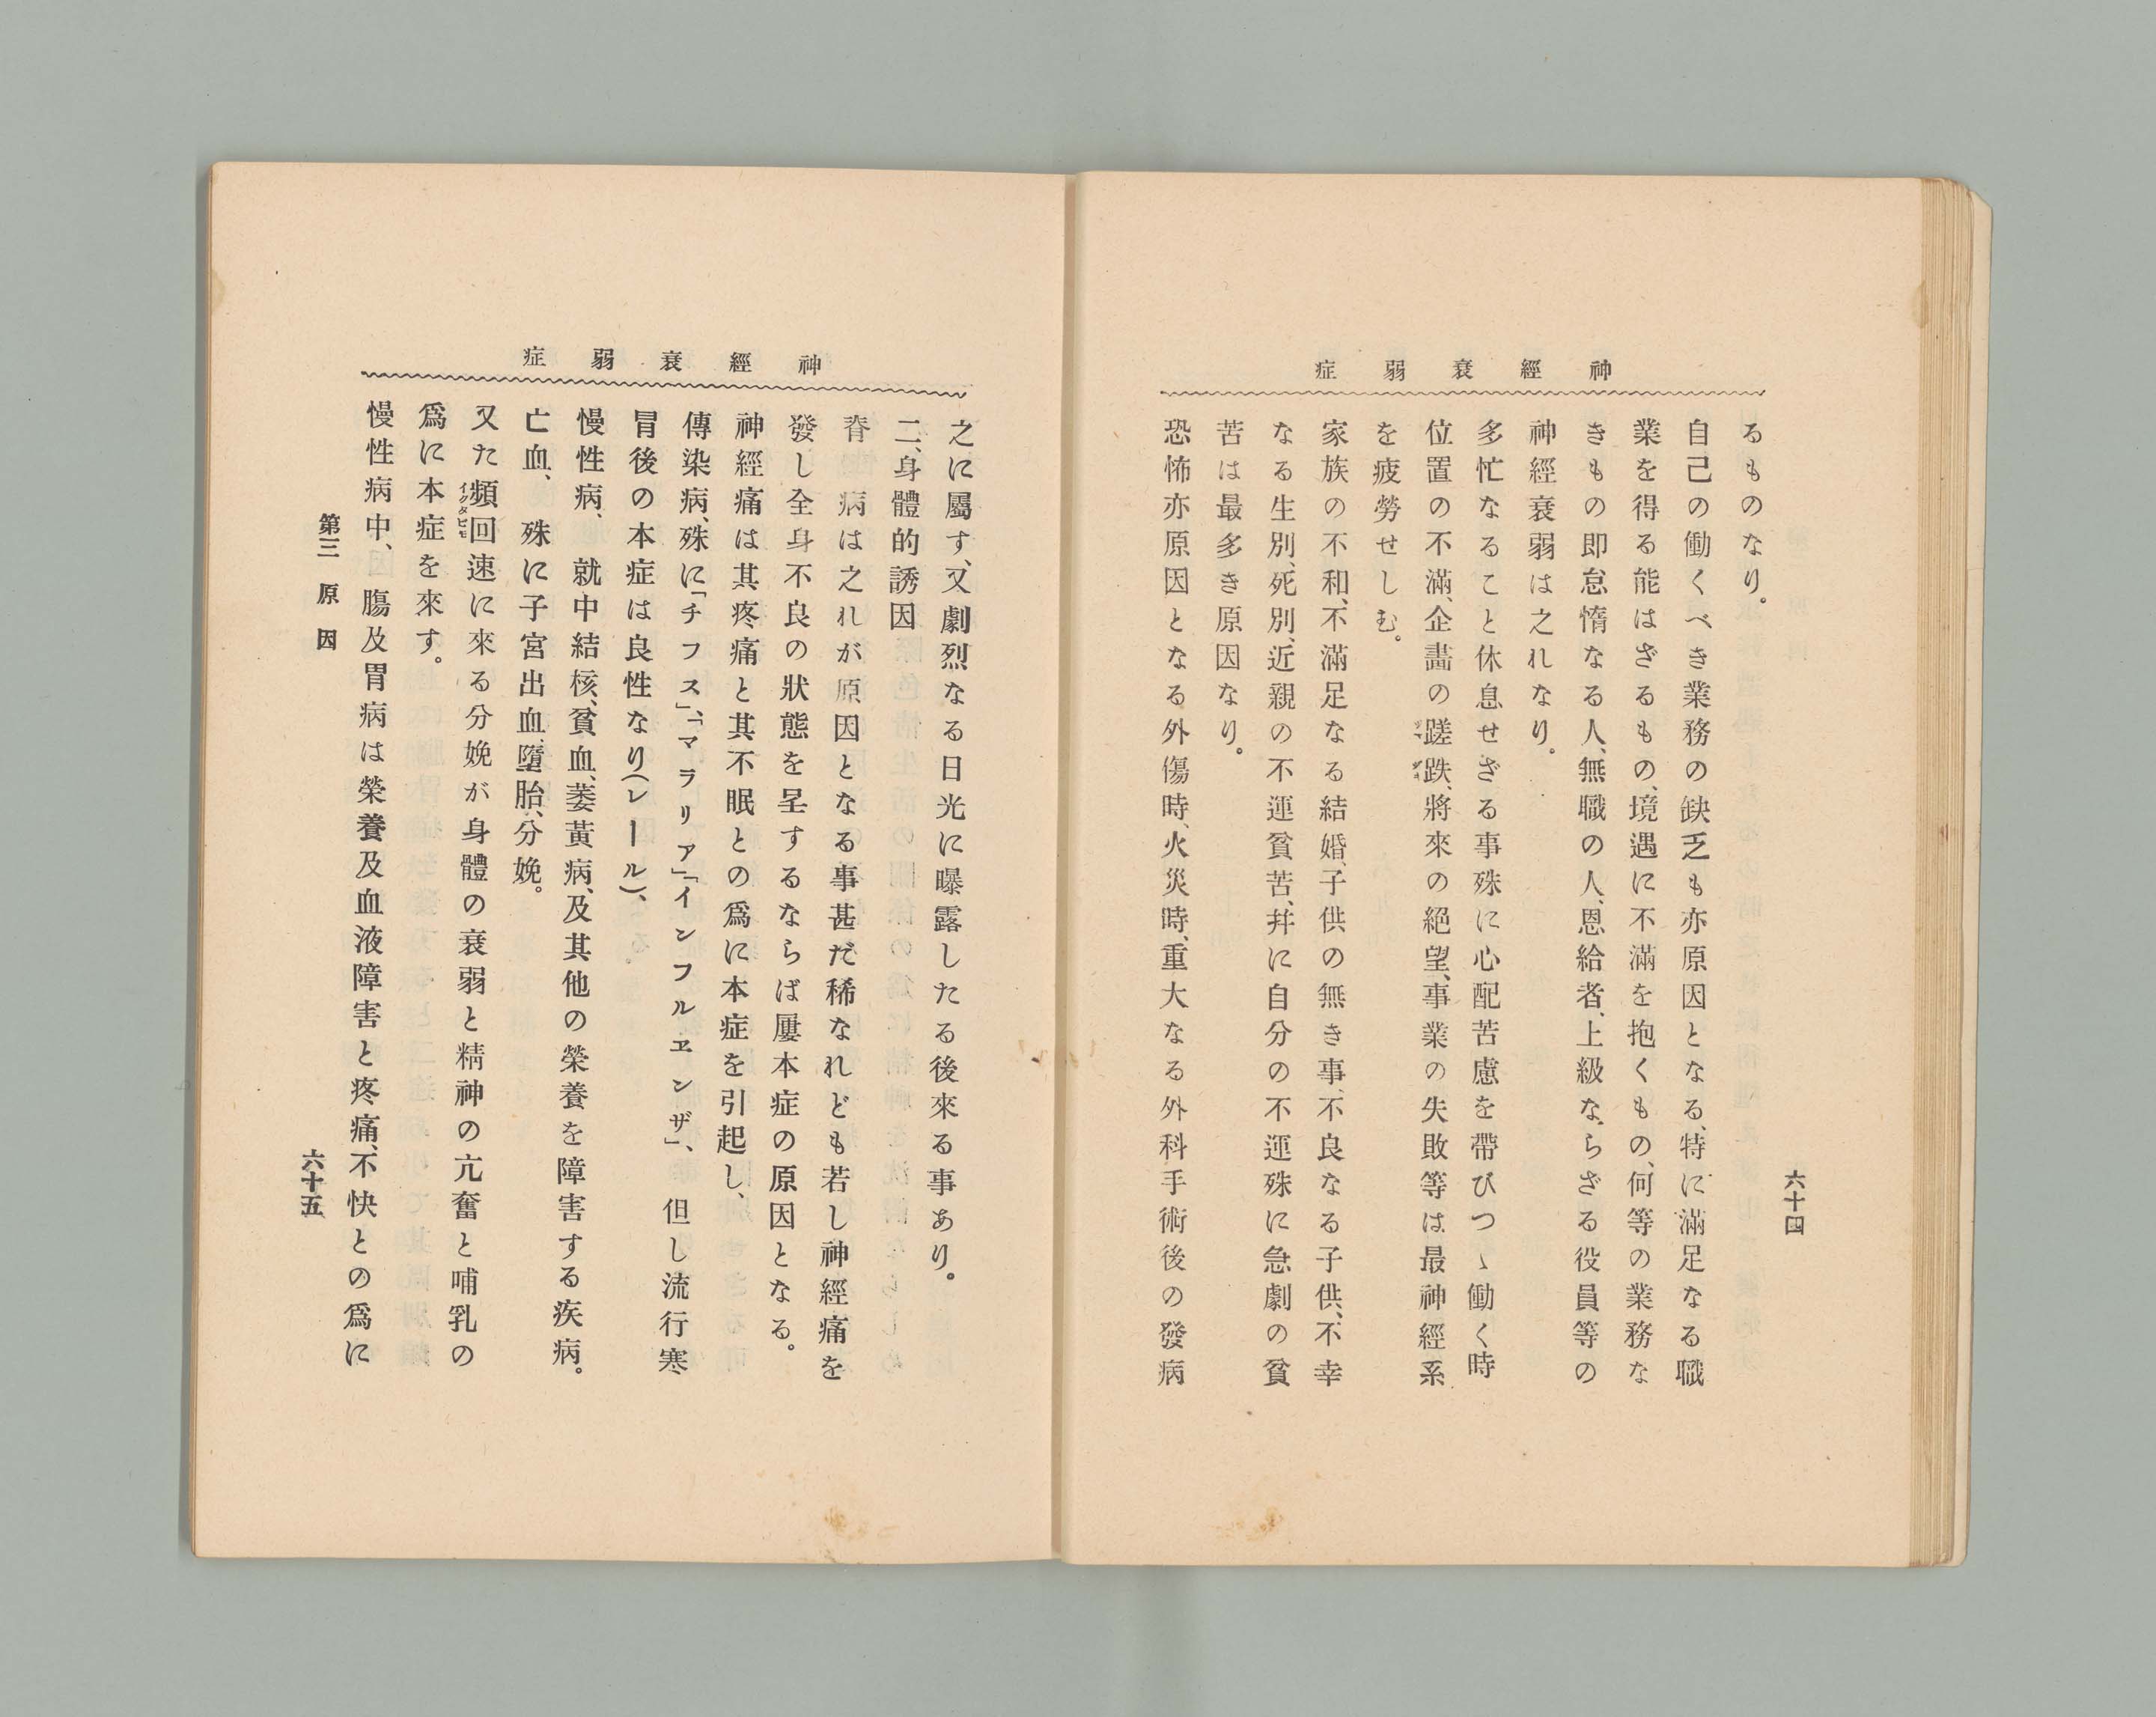 神經衰弱症
六十四
るものなり。
自己の働くべき業務の缺乏も亦原因となる、特に滿足なる職
業を得る能はざるもの、境遇に不滿を抱くもの、何等の業務な
きもの即怠惰なる人、無職の人、恩給者、上級ならざる役員等の
神經衰弱は之れなり。
多忙なること休息せざる事殊に心配苦慮を帶びつゝ働く時
位置の不滿、企畵の蹉跌、將來の絕望、事業の失敗等は最神經系
を疲勞せしむ。
家族の不和、不滿足なる結婚、子供の無き事、不良なる子供、不幸
なる生別、死別、近親の不運貧苦、幷に自分の不運殊に急劇の貧
苦は最多き原因なり。
恐怖亦原因となる外傷時、火災時、重大なる外科手術後の發病
神經衰弱症
之に屬す、又劇烈なる日光に曝露したる後來る事あり。
二、身體的誘因
脊病は之れが原因となる事甚だ稀なれども若し神經痛を
發し全身不良の狀態を呈するならば屢本症の原因となる。
神經痛は其疼痛と其不眠との爲に本症を引起し、
傳染病、殊に「チフス」、「マラリア」「インフルヱンザ」、但し流行寒
冒後の本症は良性なり(レール)、
慢性病、就中結核、貧血、萎黃病、及其他の榮養を障害する疾病。
亡血、殊に子宮出血、墮胎、分娩。
又た頻回速に來る分娩が身體の衰弱と精神の亢奮と哺乳の
イクタビモ
爲に本症を來す。
慢性病中、腸及胃病は榮養及血液障害と疼痛、不快との爲に
第三 原因
六十五